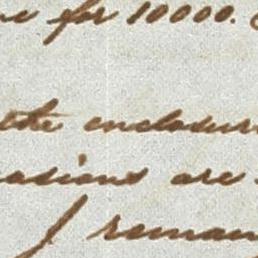 for 10000.
the enclosur
asions are
I remain